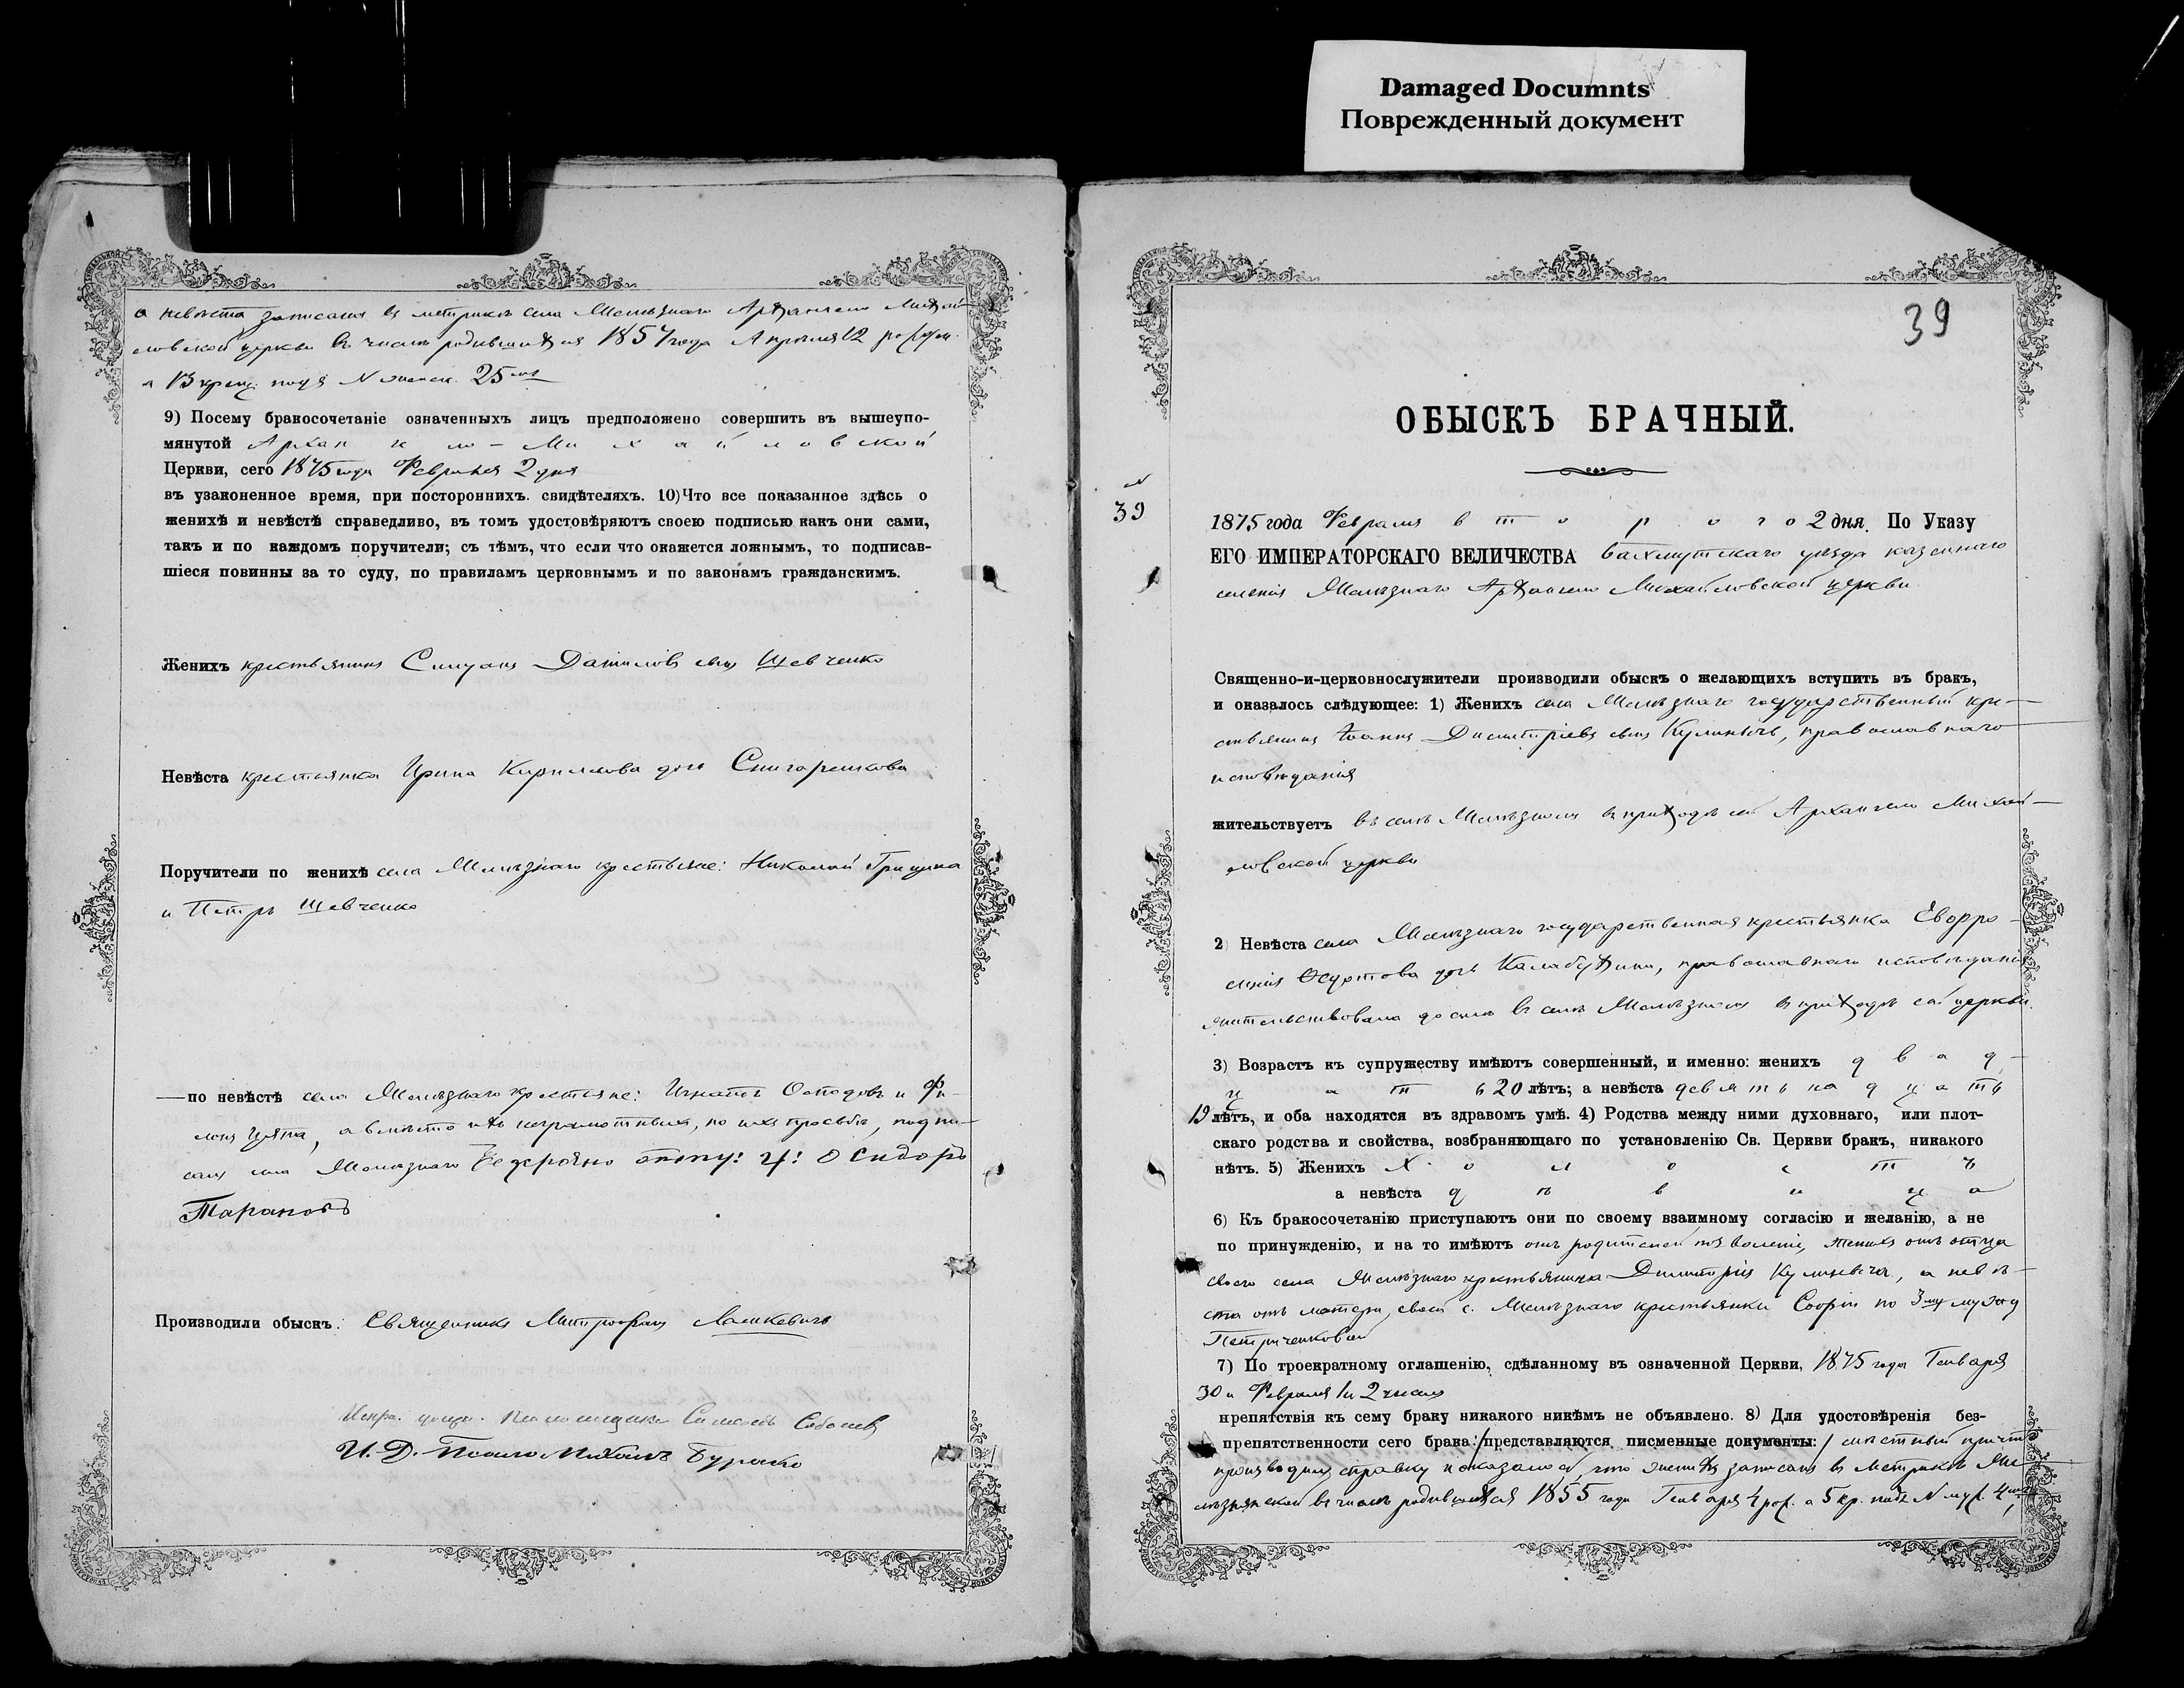 Damaged Documnts
Поврежденный документ
а невѣста записана въ метрикѣ села Желѣзнаго Архангело Михай-
ловской церкви въ числѣ родившихся 1857 года Апрѣля 12 рожден.
а 13 крещ. подъ N женск. 25мъ
9) Посему бракосочетаніе означенныхъ лицъ предположено совершить въ вышеупо-
мянутой Архангело-Михайловской
Церкви, сего 1875 года Февраля 2 дня
въ узаконенное время, при постороннихъ. свидѣтеляхъ. 10) Что все показанное здѣсь о
женихѣ и невѣстѣ справедливо, въ томъ удостовѣряютъ своею подписью какъ они сами,
такъ и по каждомъ поручители; съ тѣмъ, что если что окажется ложнымъ, то подписав-
шіеся повинны за то суду, по правиламъ церковнымъ и по законамъ гражданскимъ.
Женихъ крестьянинъ Даниловъ сынъ Шевченко
Невѣста крестьянка Ирина Кирилова дочь
Поручители по женихѣ села Желѣзнаго крестьяне: Николай Грицина
и Петръ Шевченко
—по невѣстѣ села Желѣзнаго крестьяне: Игнатъ и Фи-
, а вмѣсто ихъ неграмотныхъ, по ихъ просьбѣ, подпи-
салъ села Желѣзнаго Сидоръ
Тарановъ
Производили обыскъ: Священникъ Митрофанъ
Симеонъ
И. Д. Псалом. Михаилъ
39
ОБЫСКЪ БРАЧНЫЙ.
N
39
1875 года Февраля второго 2 дня. По Указу
ЕГО ИМПЕРАТОРСКАГО ВЕЛИЧЕСТВА Бахмутскаго уѣзда казеннаго
селенія Желѣзнаго Архангело Михайловской церкви
Священно-и-церковнослужители производили обыскъ о желающихъ вступить въ бракъ,
и оказалось слѣдующее: 1) Женихъ села Желѣзнаго государственный кре-
стьянинъ Іоаннъ Димитріевъ сынъ Кулиничъ, православнаго
исповѣданія
жительствуетъ въ селѣ Желѣзномъ въ приходѣ сей Архангело Михай-
ловской церкви
2) Невѣста села Желѣзнаго государственная крестьянка Евфро-
синія дочь Калабухина, православнаго исповѣданія
жительствовала до селѣ въ селѣ Желѣзномъ въ приходѣ сей церкви.
3) Возрастъ къ супружеству имѣютъ совершенный, и именно: женихъ двад-
цать 20 лѣтъ; а невѣста девятьнадцать
19 лѣтъ, и оба находятся въ здравомъ умѣ. 4) Родства между ними духовнаго, или плот-
скаго родства и свойства, возбраняющаго по установленію Св. Церкви бракъ, никакого
нѣтъ. 5) Женихъ холостъ
а невѣста дѣвица
6) Къ бракосочетанію приступаютъ они по своему взаимному согласію и желанію, а не
по принужденію, и на то имѣютъ отъ родителей позволеніе, женихъ отъ отца
своего села Желѣзнаго крестьянина Димитрія Кулинича, а невѣ-
ста отъ матери своей с. Желѣзнаго крестьянки Софіи по 3му мужу
Петриченковой
7) По троекратному оглашенію, сдѣланному въ означенной Церкви, 1875 года Генваря
30 и Февраля 1 и 2 чиселъ
препятствія къ сему браку никакого никѣмъ не объявлено. 8) Для удостовѣренія без-
препятственности сего брака: /представляются писменные документы:/ мѣстный причтъ
производилъ справку и оказалось, что женихъ записанъ въ метрикѣ Же-
лѣзнянской въ числѣ родившихся 1855 года Генваря 4 рож. а 5 кр. подъ N муж. 4мъ